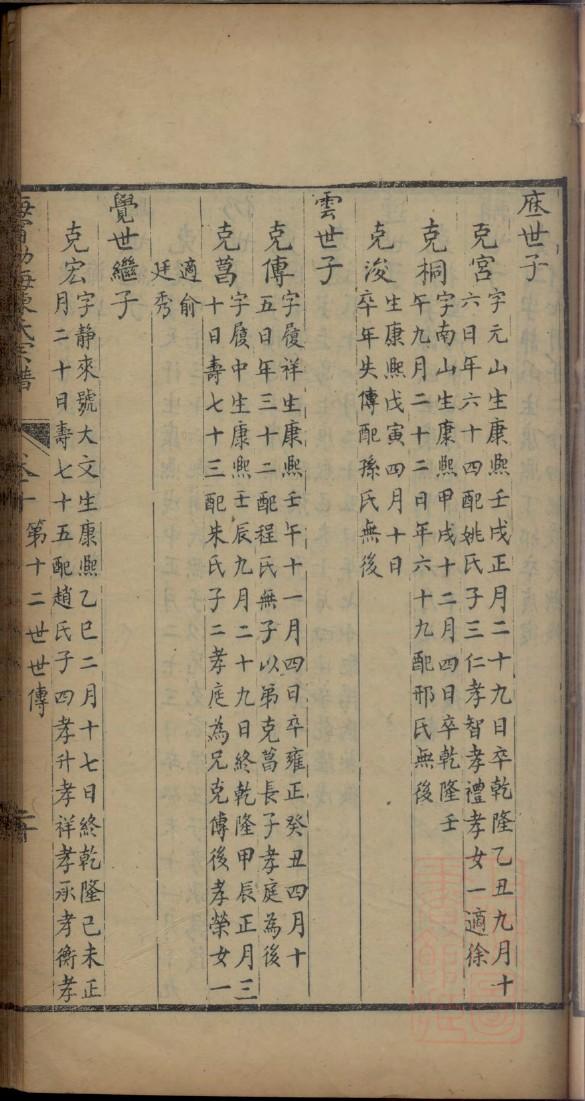 庶世子
克宮
字元山生康熙壬戌正月二十九日卒乾隆乙丑九月十
六日年六十四配姚氏子三仁孝智孝禮孝女一適徐
克桐
字南山生康熙甲戌十二月四日卒乾隆壬
午九月二十二日年六十九配邢氏無後
克浚
生康熙戊寅四月十日
卒年失傳配孫氏無後
雲世子
克傳
字履祥生康熙壬午十一月四日卒雍正癸丑四月十
五日年三十二配程氏無子以弟克菖長子孝庭為後
克菖
字履中生康熙壬辰九月二十九日終乾隆甲辰正月三
十日壽七十三配朱氏子二孝庭為兄克傳後孝榮女一
適俞
廷秀
覺世繼子
克宏
字靜來號大文生康熙乙巳二月十七日終乾隆己未正
月二十日壽七十五配趙氏子四孝升孝祥孝承孝衡孝
海寧渤海陳氏宗譜
卷十 第十二世世傳